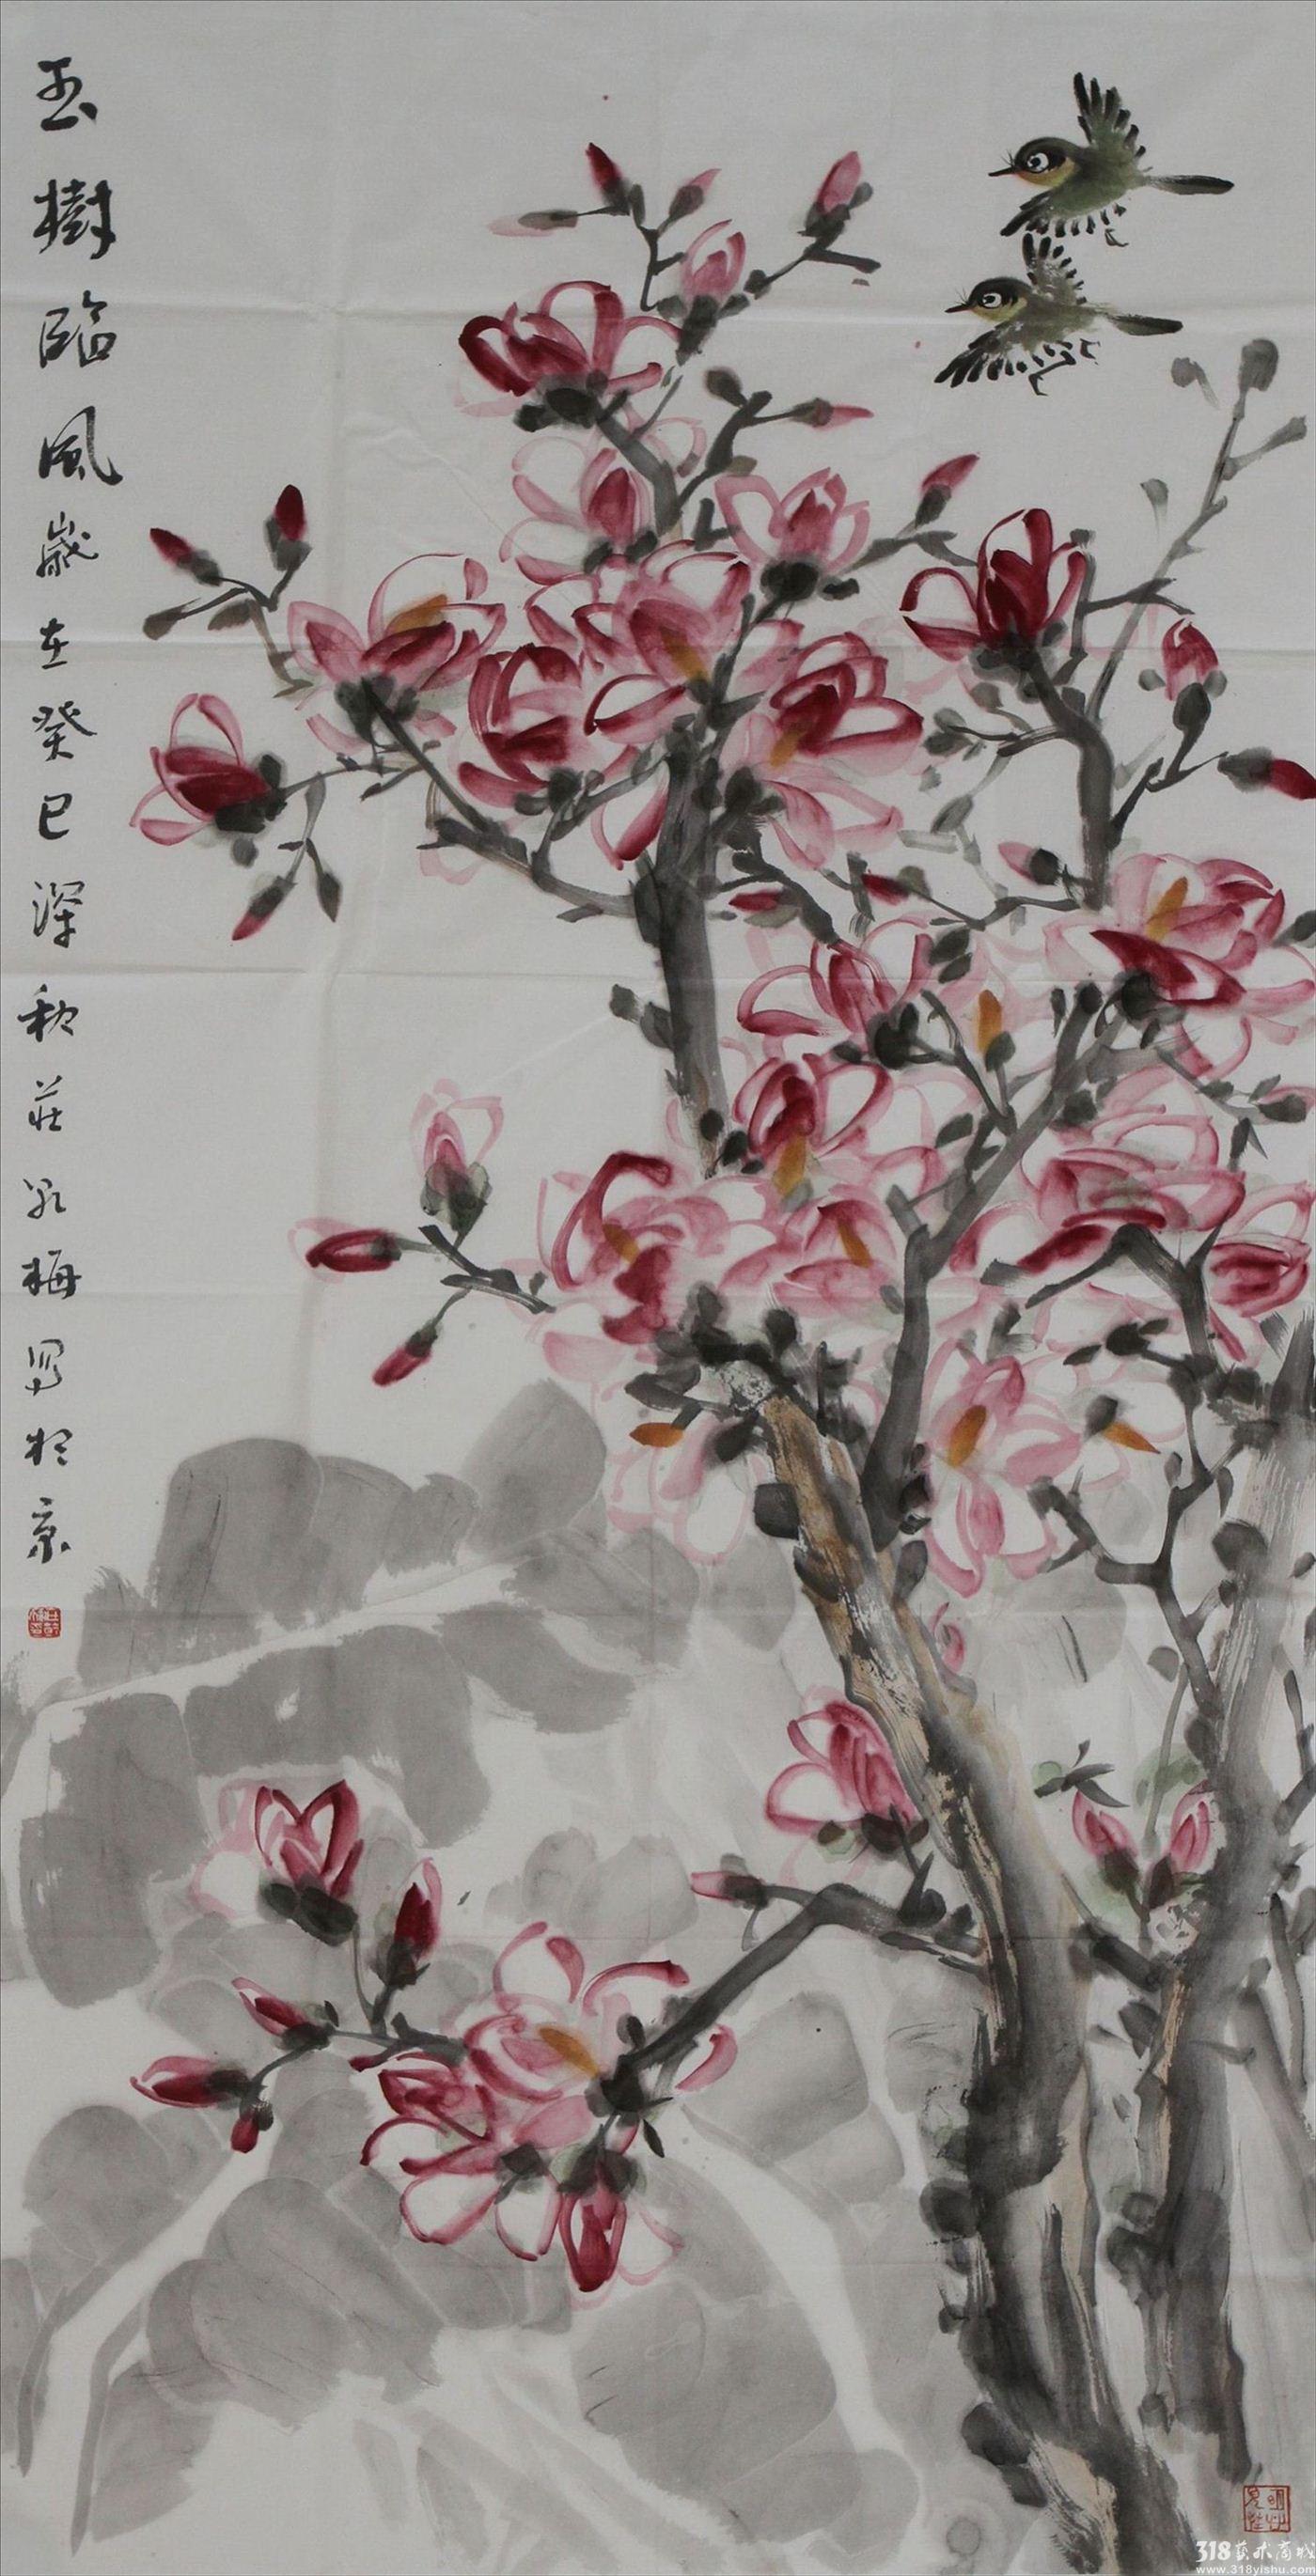 玉樹臨風歲在癸巳深秋莊弘梅寫於京
318艺术商城
www.318yishu.com